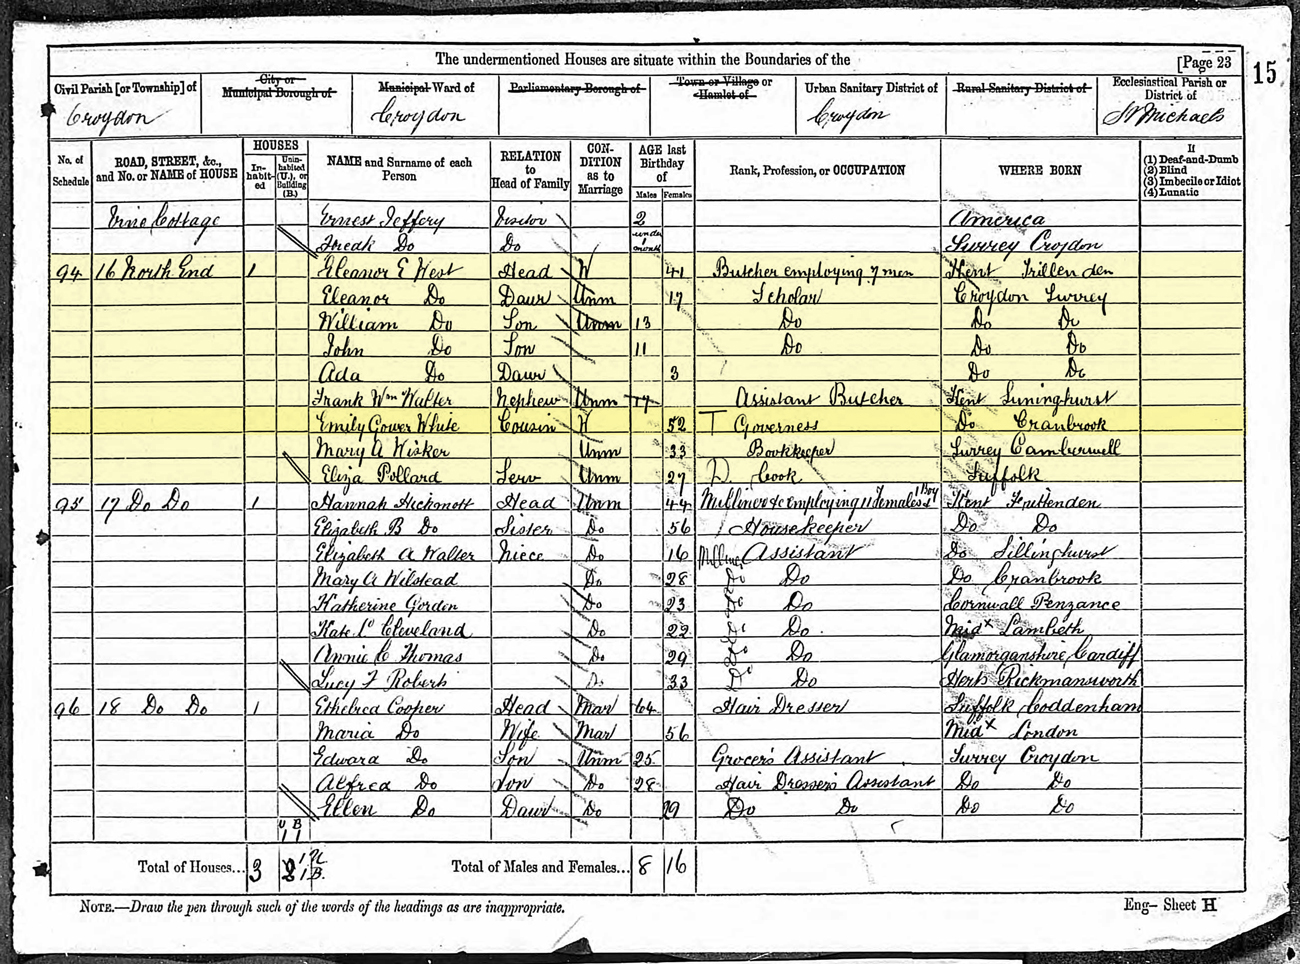 The undermentioned Houses are situate within the Boundaries of the
[Page 23
15
Civil Parish [or Township] of
City or Municipal Borough of
Municipal Ward of
Parliamentary Borough of
Town or Village or Hamlet of
Urban Sanitary District of
Rural Sanitary District of
Ecclesiastical Parish or District of
Croydon Croydon Croydon St Michaels
No. of Schedule
ROAD, STREET, &c., and No. or NAME of HOUSE
HOUSES
Inhabited
Uninhabited (U.), or Building (B.)
NAME and Surname of each Person
RELATION to Head of Family
CONDITION as to Marriage
AGE last Birthday of
Males Females
Rank, Profession, or OCCUPATION
WHERE BORN
If
(1) Deaf-and-Dumb
(2) Blind
(3) Imbecile or Idiot
(4) Lunatic
Vine Cottage Ernest Jeffery Visitor 2 America
Do Do under 1 month Surrey Croydon
94 16 North End 1 Eleanor E West Head W 41 Butcher employing 7 men Kent
Eleanor Do Daur Unm 17 Scholar Croydon Surrey
William Do Son Unm 13 Do Do Do
John Do Son 11 Do Do Do
Ada Do Daur 3 Do Do
Frank Wm Walter Nephew Unm 17 Assistant Butcher Kent
Emily Gower White Cousin W 52 Governess Do Cranbrook
Mary A Wisker Unm 33 Bookkeeper Surrey Camberwell
Eliza Pollard Serv Unm 27 D. Cook Suffolk
95 17 Do Do 1 Hannah Hickmott Head Unm 44 Milliner &c employing 11 Females & 1 Boy Kent
Elizabeth B Do Sister Do 56 Housekeeper Do Do
Elizabeth A Walter Niece Do 16 Assistant Do
Mary A Wilstead Do 28 Do Do Do Cranbrook
Katherine Gordon Do 23 Do Do Cornwall Penzance
Kate Cleveland Do 22 Do Do Midx Lambeth
Annie C Thomas Do 29 Do Do Glamorganshire Cardiff
Lucy F Roberts Do 33 Do Do Herts Rickmansworth
96 18 Do Do 1 Cooper Head Mar 64 Hair Dresser Suffolk Coddenham
Maria Do Wife Mar 56 Midx London
Edward Do Son Unm 25 Grocer's Assistant Surrey Croydon
Alfred Do Son Do 28 Hair Dresser's Assistant Do Do
Ellen Do Daur Do 29 Do Do Do Do
U B
1 1
Total of Houses... 3 Total of Males and Females... 8 16
NOTE.—Draw the pen through such of the words of the headings as are inappropriate.
Eng— Sheet H